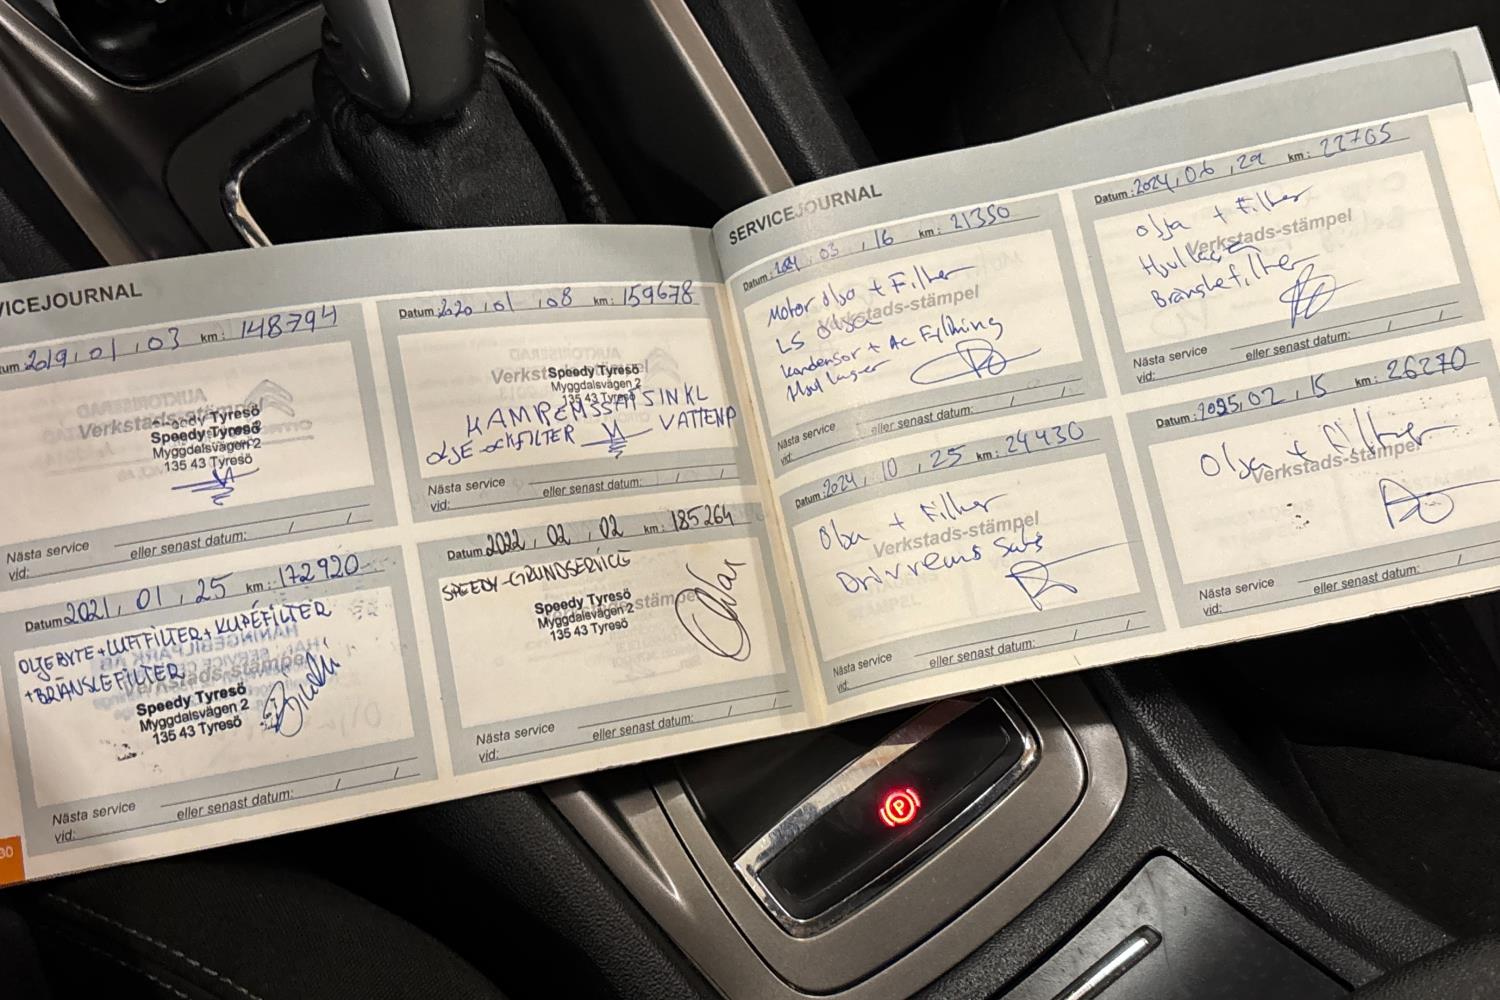 VICEJOURNAL
um: 2019, 01, 03 km: 148794
Verkstads-stämpel
Speedy Tyresö
Speedy Tyresö
Myggdalsvägen 2
135 43 Tyresö
Nästa service
vid: eller senast datum: / /
Datum: 220, 01, 08 km: 159678
Verkstads-stämpel
Speedy Tyresö
Myggdalsvägen 2
135 43 Tyresö
KAMREMSSATS INKL
OLJE OCKFILTER VATTENP
Nästa service
vid: eller senast datum: / /
Datum 2021, 01, 25 km: 172920
OLJEBYTE + LUFTFILTER + KUPÉFILTER
+ BRÄNSLEFILTER
Verkstads-stämpel
Speedy Tyresö
Myggdalsvägen 2
135 43 Tyresö
Nästa service
vid: eller senast datum: / /
Datum 2022, 02, 02 km: 185264
SPEEDY-GRUNDSERVICE
Verkstads-stämpel
Speedy Tyresö
Myggdalsvägen 2
135 43 Tyresö
Nästa service
vid: eller senast datum: / /
30
SERVICEJOURNAL
Datum: 03, 16 km: 21350
Motor olja + Filter
Verkstads-stämpel
LS olja
Kondensor + AC Fyllning
Hjullager
Nästa service
vid: eller senast datum: / /
Datum: 2024, 06, 29 km: 22705
Olja + Filter
Verkstads-stämpel
Hjullager
Bränslefilter
Nästa service
vid: eller senast datum: / /
Datum: 2024, 10, 25 km: 24430
Olja + Filter
Verkstads-stämpel
Drivrems Sats
Nästa service
vid: eller senast datum: / /
Datum: 2025, 02, 15 km: 26270
Olja + Filter
Verkstads-stämpel
Nästa service
vid: eller senast datum: / /
P